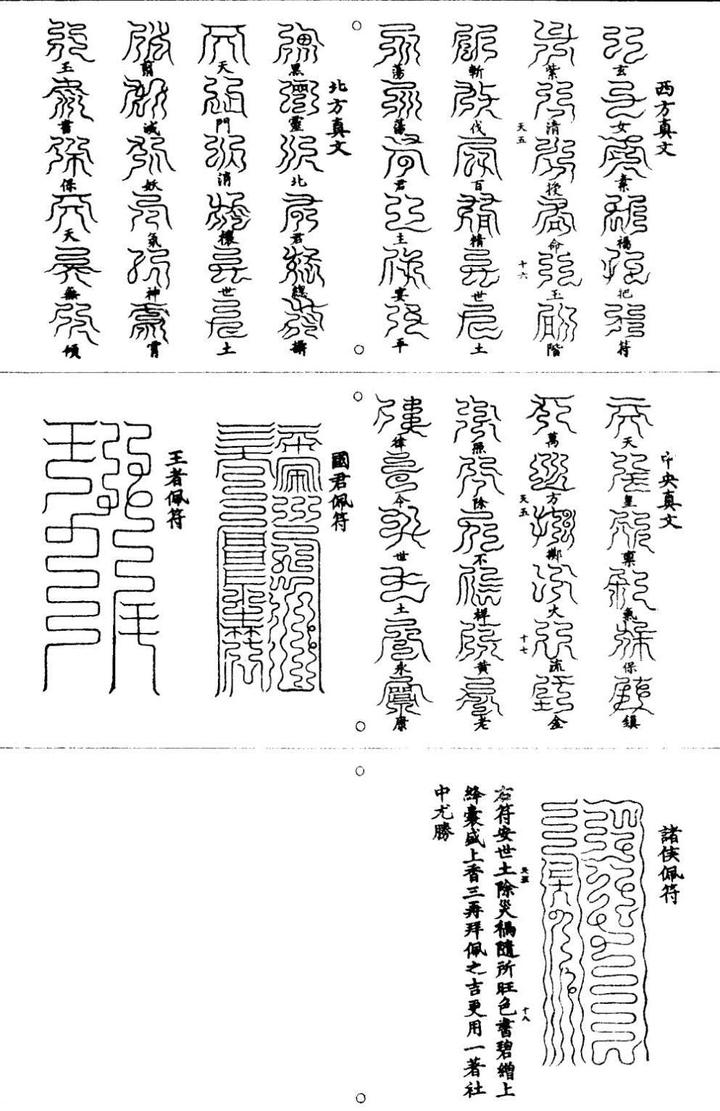 西方真文
玄女素福把符
紫清授命玉階
天五 十六
斬伐百精世土
蕩蕩君主宴平
北方真文
黑靈北君總攝
天門消禳世土
翦滅妖氣神霄
玉書保天無傾
中央真文
天皇稟氣保鎮
萬方擲火流金
天五 十七
照除不祥黃老
律令世土永康
國君佩符
王者佩符
諸侯佩符
天五 十八
右符安世土除災禍隨所旺色書碧繒上
絳囊盛上香三再拜佩之吉更用一著社
中尤勝